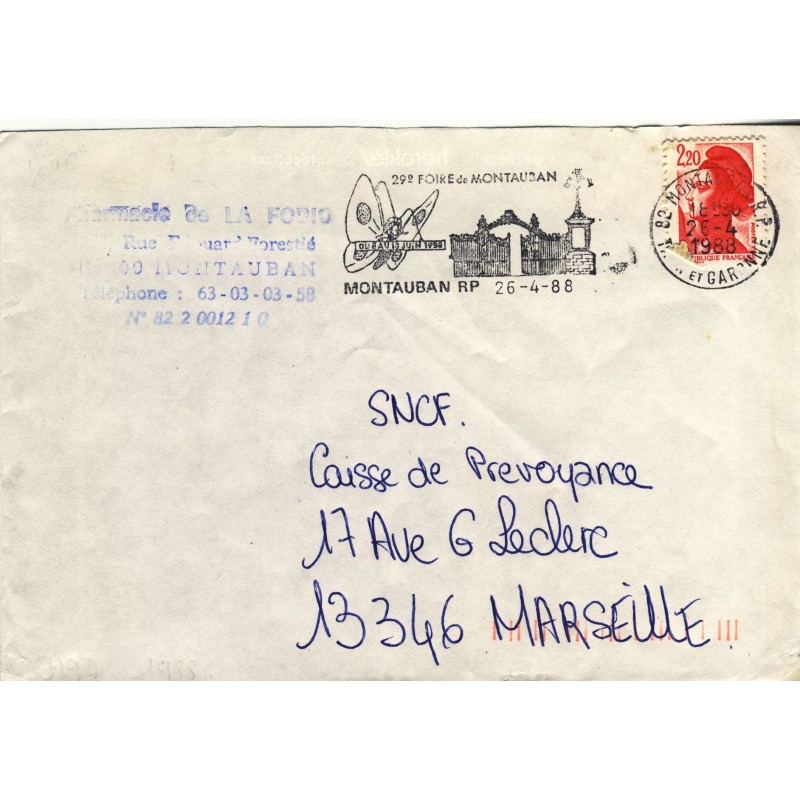 29e FOIRE de MONTAUBAN
DU 8 AU 13 JUIN 1988
MONTAUBAN RP 26-4-88
2,20
82 MONTAUBAN R.P.
18H
26-4
1988
TARN ET GARONNE
RÉPUBLIQUE FRANÇAISE
Pharmacie de LA FOBIO
Rue Edouard Forestié
00 MONTAUBAN
Téléphone : 63-03-03-58
N° 82 2 0012 1 0
SNCF.
Caisse de Prevoyance
17 Ave G Leclerc
13346 MARSEILLE.